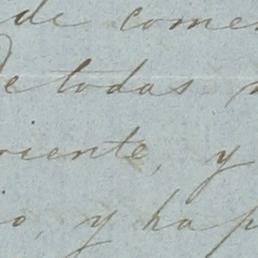 de comer
e todas
riente, y
io, y ha p